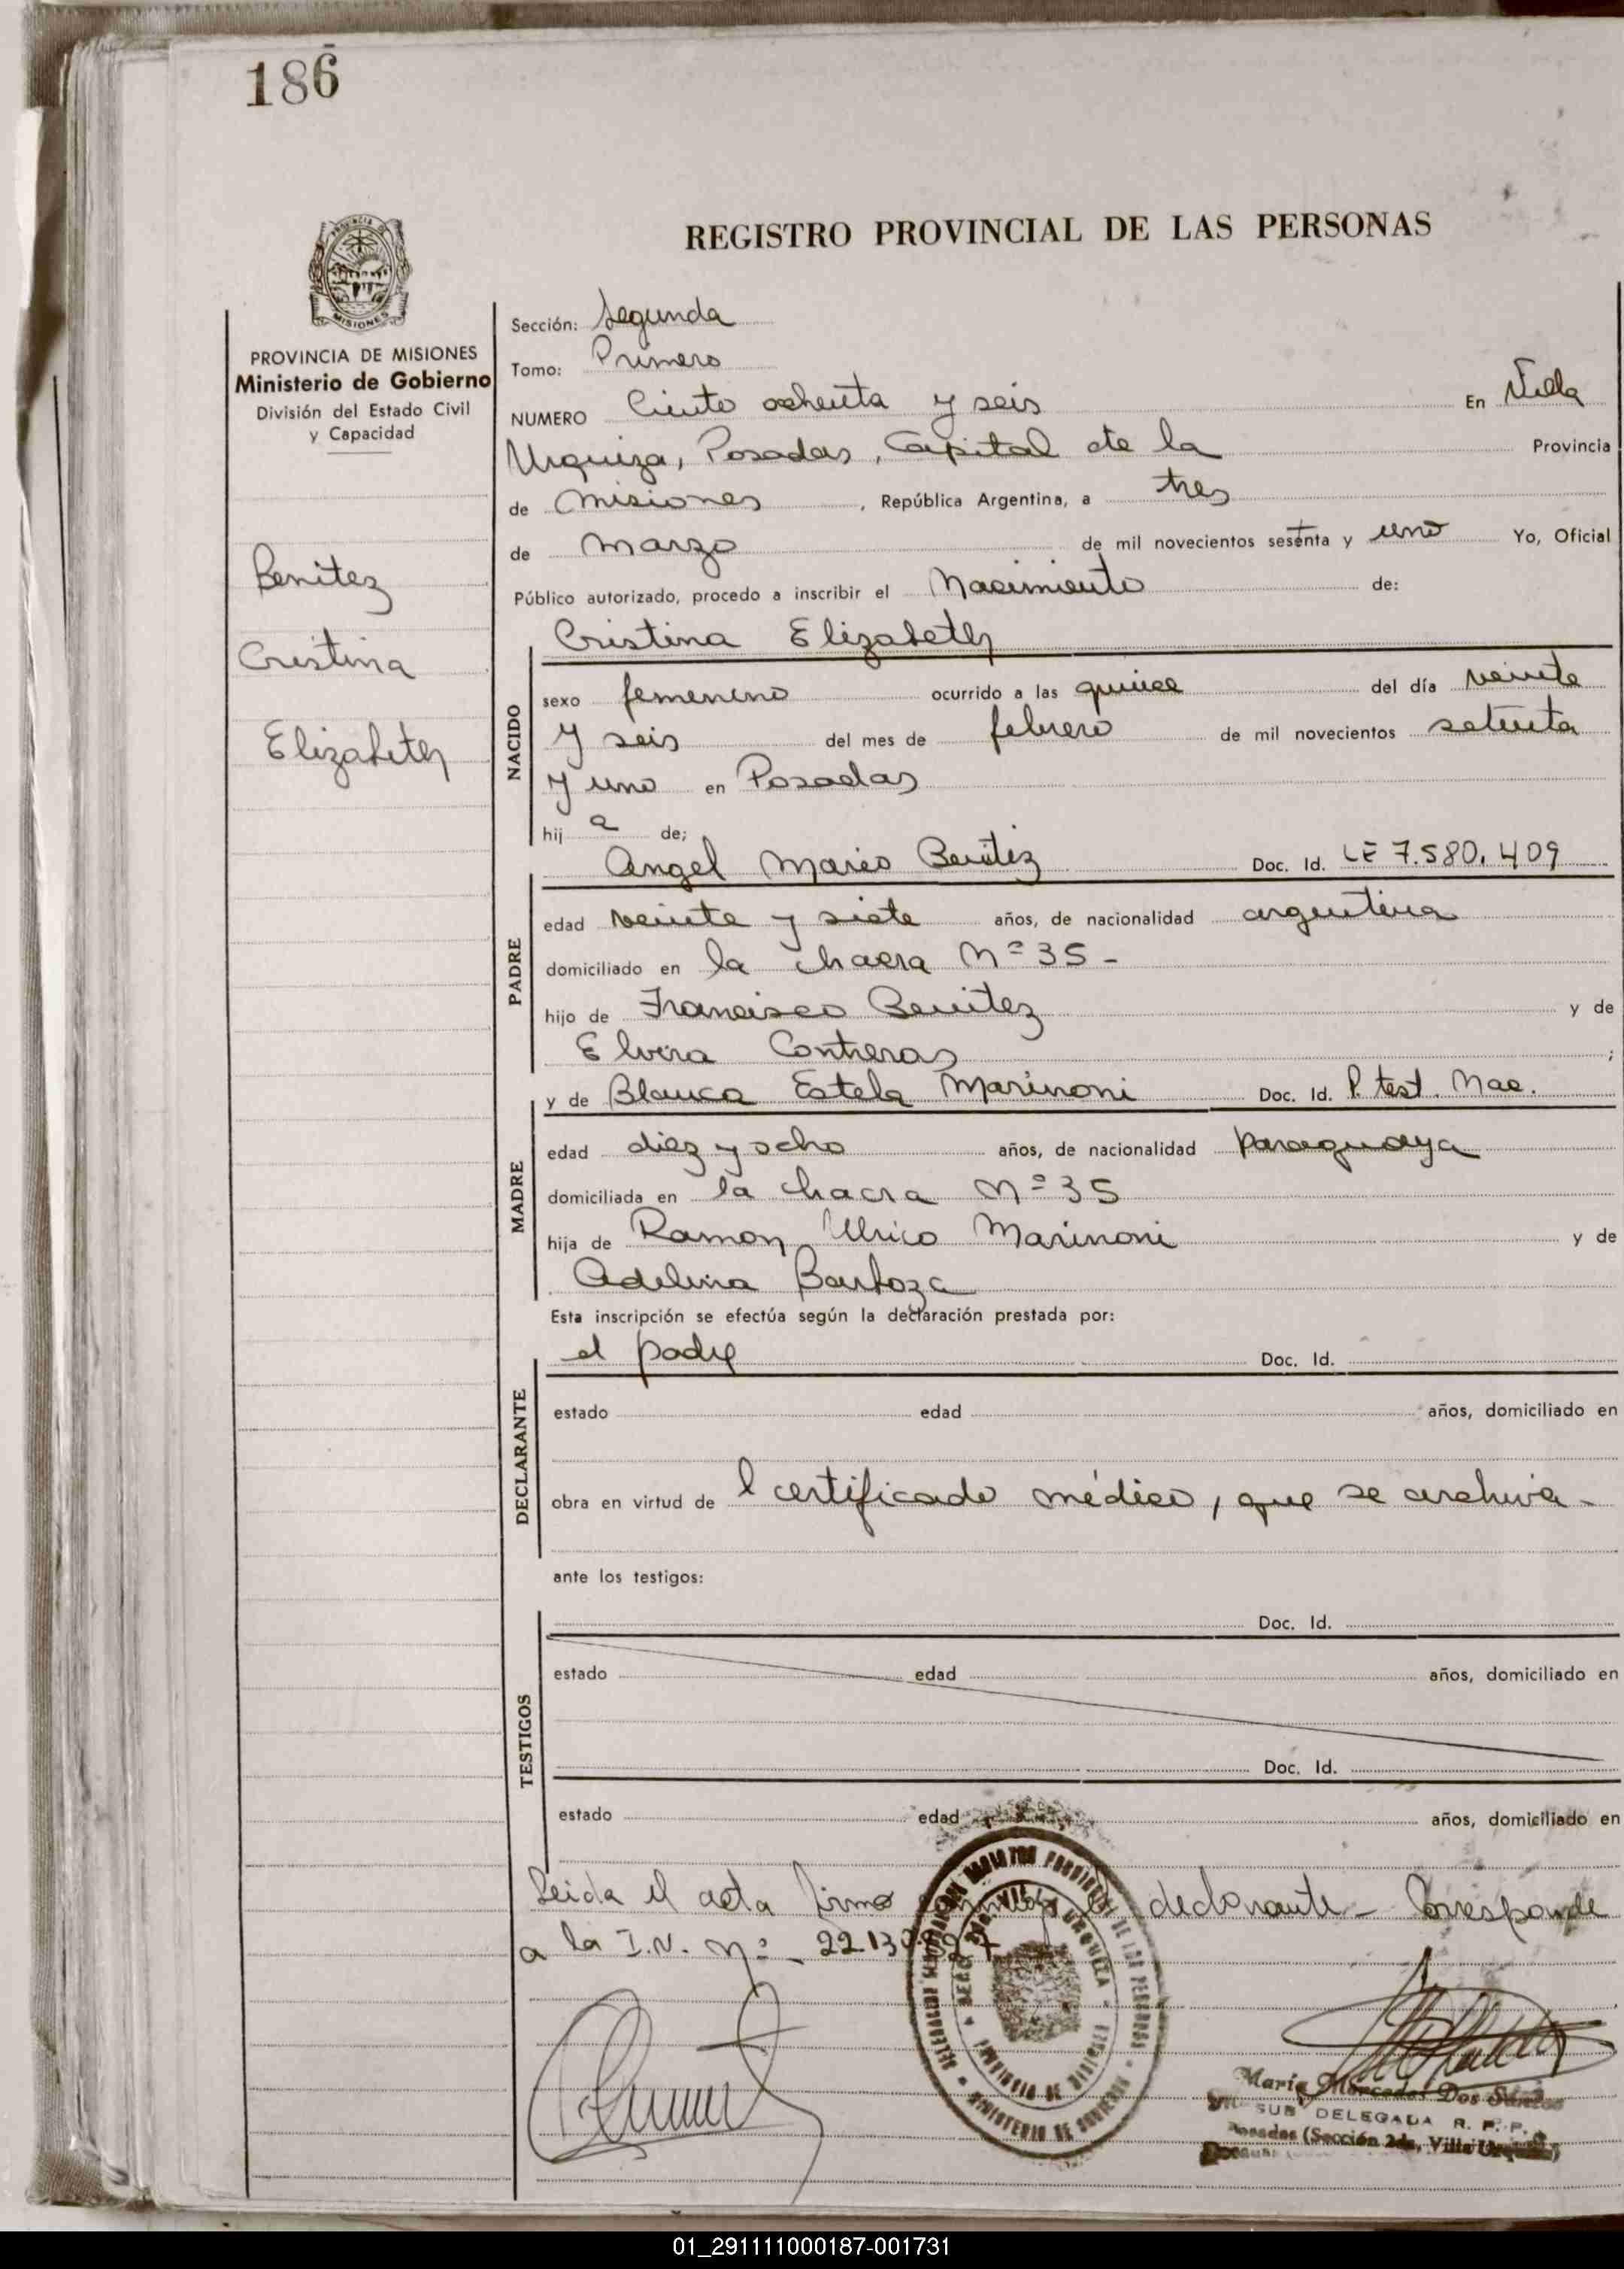 186
REGISTRO PROVINCIAL DE LAS PERSONAS
MISIONES
PROVINCIA DE MISIONES
Ministerio de Gobierno
División del Estado Civil
y Capacidad
Benitez
Cristina
Elizabeth
Sección: Segunda
Tomo: Primero
NUMERO Ciento ochenta y seis En Villa
Urquiza, Posadas, Capital de la Provincia
de Misiones, República Argentina, a tres
de marzo de mil novecientos sesenta y uno Yo, Oficial
Público autorizado, procedo a inscribir el Nacimiento de:
Cristina Elizabeth
NACIDO
sexo femenino ocurrido a las quince del día veinte
y seis del mes de febrero de mil novecientos setenta
y uno en Posadas
hij a de;
Angel Mario Benitez Doc. Id. LE 7.580.409
PADRE
edad veinte y siete años, de nacionalidad argentina
domiciliado en la chacra Nº 35 -
hijo de Francisco Benitez y de
Elvira Contreras ;
y de Blanca Estela Marinoni Doc. Id. P. test. Nac.
MADRE
edad diez y ocho años, de nacionalidad paraguaya
domiciliada en la chacra Nº 35
hija de Ramon Ulrico Marinoni y de
Adelina Barboza
Esta inscripción se efectúa según la declaración prestada por:
el padre Doc. Id.
DECLARANTE
estado edad años, domiciliado en
obra en virtud de l certificado médico, que se archiva -
ante los testigos:
Doc. Id.
TESTIGOS
estado edad años, domiciliado en
Doc. Id.
estado edad años, domiciliado en
Leida el acta firma declarante - Corresponde
a la I.N. nº - 22.13
María Mercedes Dos Santos
SUB DELEGADA R. P. P.
Posadas (Sección 2da, Villa Urquiza)
01_291111000187-001731